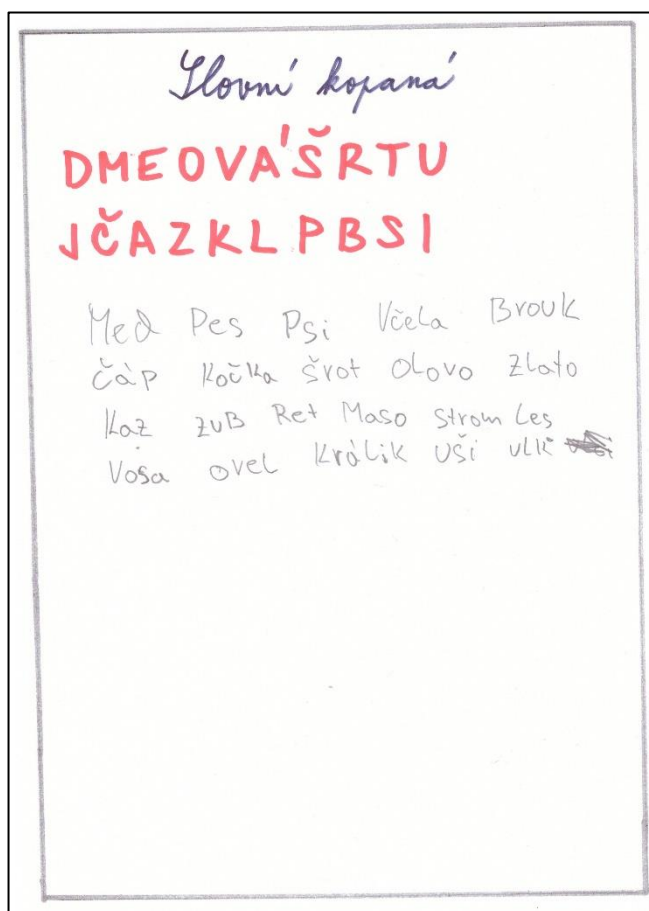 Slovní kopaná
DMEOVÁŠRTU
JČAZKLPBSI
Med Pes Psi Včela Brouk
čáp kočka švot olovo zlato
kaz zuB Ret Maso strom Les
Vosa ovel králik uši vlk